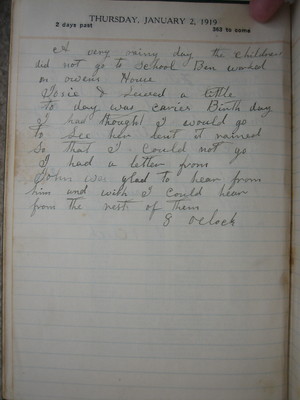 THURSDAY, JANUARY 2, 1919
2 days past 363 to come
A very rainy day the children
did not go to school Ben worked
on owens House
Josie & I sewed a little
To day was carier Birth day
I had thought I would go
to see her but it rained
so that I could not go
I had a letter from
John was glad to hear from
him and wish I could hear
from the rest of them
8 oclock